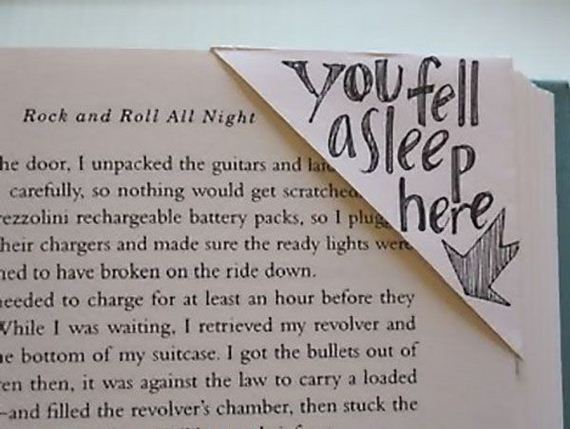 Rock and Roll All Night
you fell
asleep
here
he door, I unpacked the guitars and
carefully, so nothing would get scratched.
rezzolini rechargeable battery packs, so I
heir chargers and made sure the ready lights were
ned to have broken on the ride down.
needed to charge for at least an hour before they
While I was waiting, I retrieved my revolver and
e bottom of my suitcase. I got the bullets out of
en then, it was against the law to carry a loaded
—and filled the revolver's chamber, then stuck the